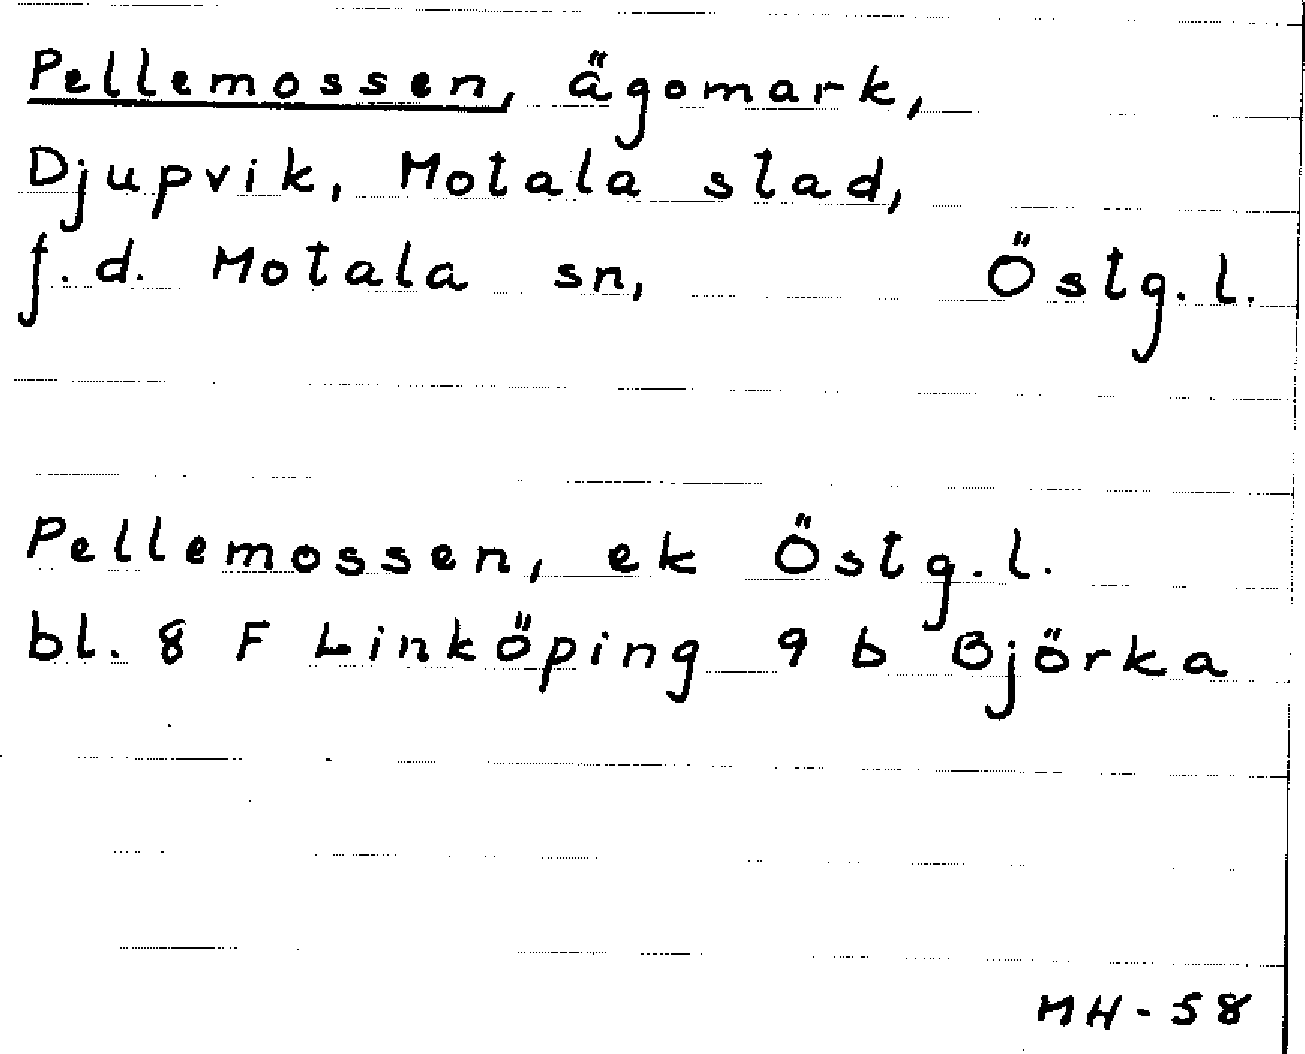 Pellemossen, ägomark,
Djupvik, Motala stad,
f.d. Motala sn, Östg.l.
Pellemossen, ek Östg.l.
bl. 8 F Linköping 9 b Björka
MH-58